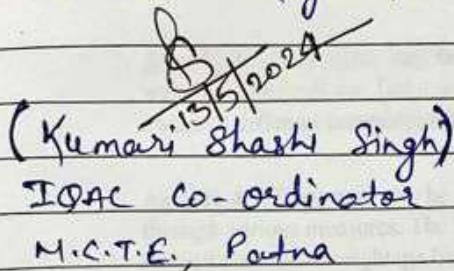 13/5/2024
(Kumari Shashi Singh)
IQAC Co-ordinator
M.C.T.E., Patna